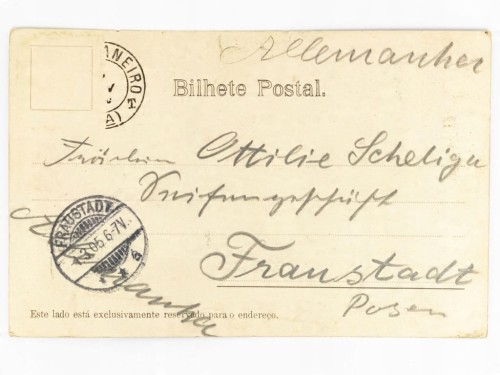 Allemanha
ANEIRO
Bilhete Postal.
Fräulein Ottilie Scheliga
Seifengeschäft
FRAUSTADT
05 6-7V.
a
Fraustadt
Posen
Este lado está exclusivamente reservado para o endereço.